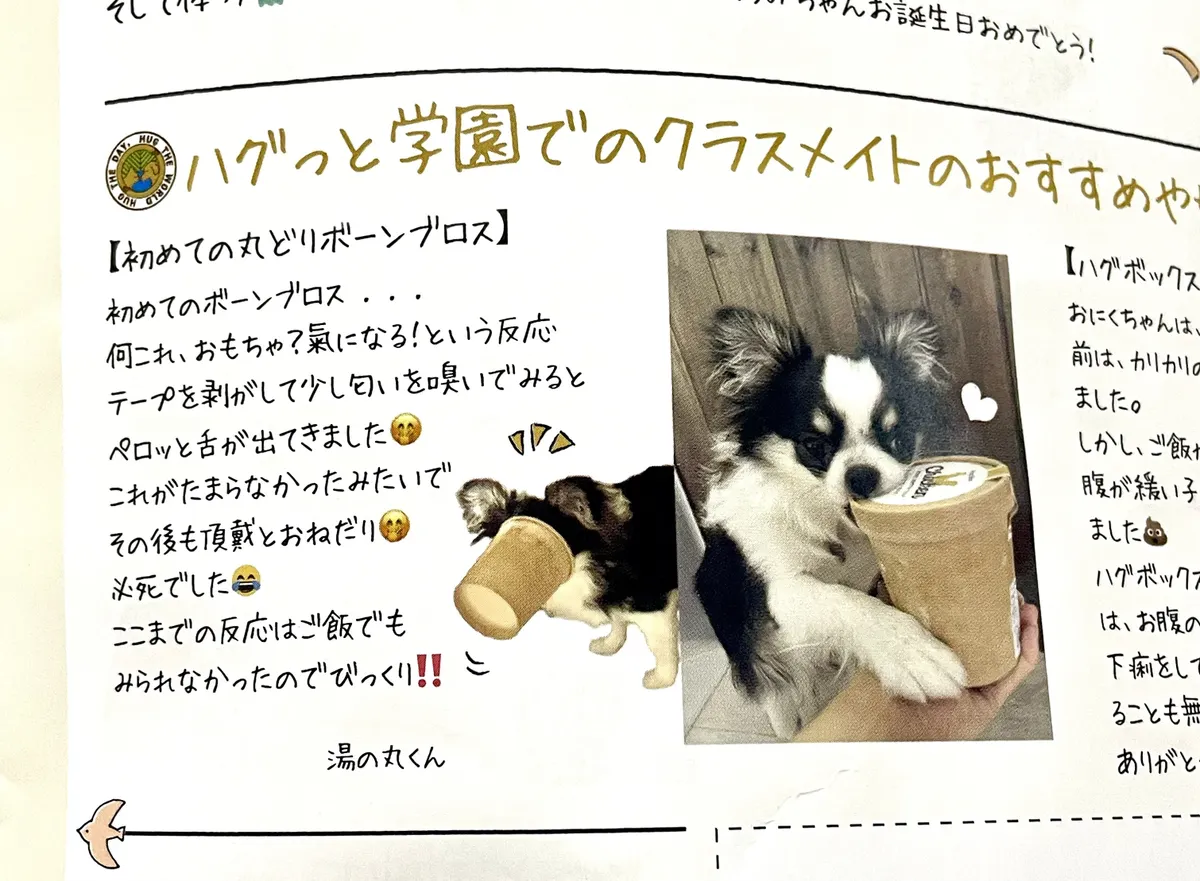 ちゃんお誕生日おめでとう!
HUG THE DAY, HUG THE WORLD
ハグっと学園でのクラスメイトのおすすめや
【初めての丸どりボーンブロス】
初めてのボーンブロス・・・
何これ、おもちゃ?氣になる!という反応
テープを剥がして少し匂いを嗅いでみると
ペロッと舌が出てきました🤭
これがたまらなかったみたいで
その後も頂戴とおねだり🤭
必死でした😂
ここまでの反応はご飯でも
みられなかったのでびっくり‼️
湯の丸くん
Chicken
【ハグボックス
おにくちゃんは、
前は、カリカリの
ました。
しかし、ご飯が
腹が緩い子
ました💩
ハグボックス
は、お腹の
下痢をして
ることも無
ありがと